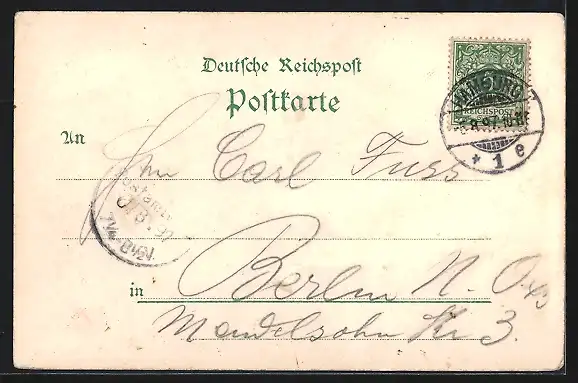 Deutsche Reichspost
Postkarte
HAMBURG
REICHSPOST
* 1 e
An
Hrn Carl Fuss
in Berlin N. O.
Mendelsohn Str 3.